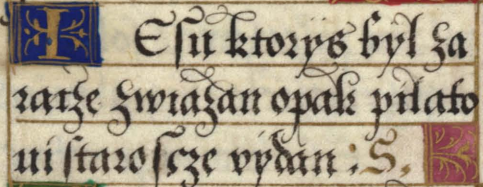 IEsu ktorys był za
racze zwiazan opak pilato
ui staroscze wydan : S.